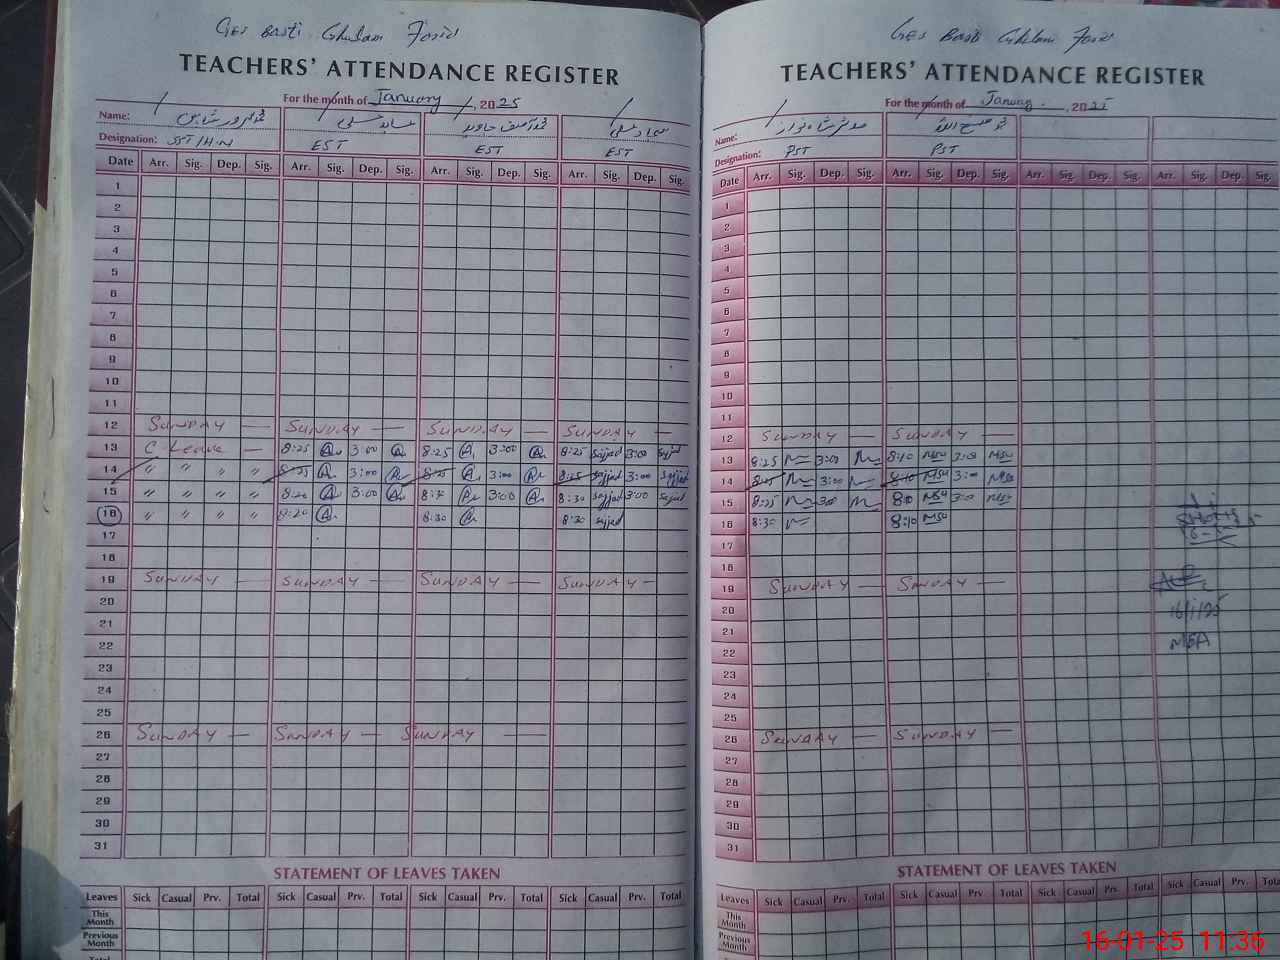 GES Basti Ghulam Farid
TEACHERS' ATTENDANCE REGISTER
For the month of January, 2025
Name:
Designation: SST/H.M EST EST EST
Date Arr. Sig. Dep. Sig. Arr. Sig. Dep. Sig. Arr. Sig. Dep. Sig. Arr. Sig. Dep. Sig.
1
2
3
4
5
6
7
8
9
10
11
12 SUNDAY — SUNDAY — SUNDAY — SUNDAY —
13 C. Leave — 8:25 3:00 8:25 3:00 8:25 Sajjad 3:00 Sajjad
14 " " " " 8:25 3:00 8:25 3:00 8:25 Sajjad 3:00 Sajjad
15 " " " " 8:20 3:00 3:00 8:30 Sajjad 3:00 Sajjad
16 " " " " 8:20 8:30 8:30 Sajjad
17
18
19 SUNDAY — SUNDAY — SUNDAY — SUNDAY —
20
21
22
23
24
25
26 SUNDAY — SUNDAY — SUNDAY —
27
28
29
30
31
STATEMENT OF LEAVES TAKEN
Leaves Sick Casual Prv. Total Sick Casual Prv. Total Sick Casual Prv. Total Sick Casual Prv. Total
This Month
Previous Month
GES Basti Ghulam Farid
TEACHERS' ATTENDANCE REGISTER
For the month of January, 2025
Name:
Designation: PST PST
Date Arr. Sig. Dep. Sig. Arr. Sig. Dep. Sig. Arr. Sig. Dep. Sig. Arr. Sig. Dep. Sig.
1
2
3
4
5
6
7
8
9
10
11
12 SUNDAY — SUNDAY —
13 8:25 3:00 8:10 MSU 3:00 MSU
14 8:25 3:00 8:10 MSU 3:00 MSU
15 8:25 3:00 8:10 MSU 3:00 MSU
16 8:30 8:10 MSU
17
18
19 SUNDAY — SUNDAY —
20 16/1/25
21
22 MEA
23
24
25
26 SUNDAY — SUNDAY —
27
28
29
30
31
STATEMENT OF LEAVES TAKEN
Leaves Sick Casual Prv. Total Sick Casual Prv. Total Sick Casual Prv. Total Sick Casual Prv. Total
This Month
Previous Month
16-01-25 11:36